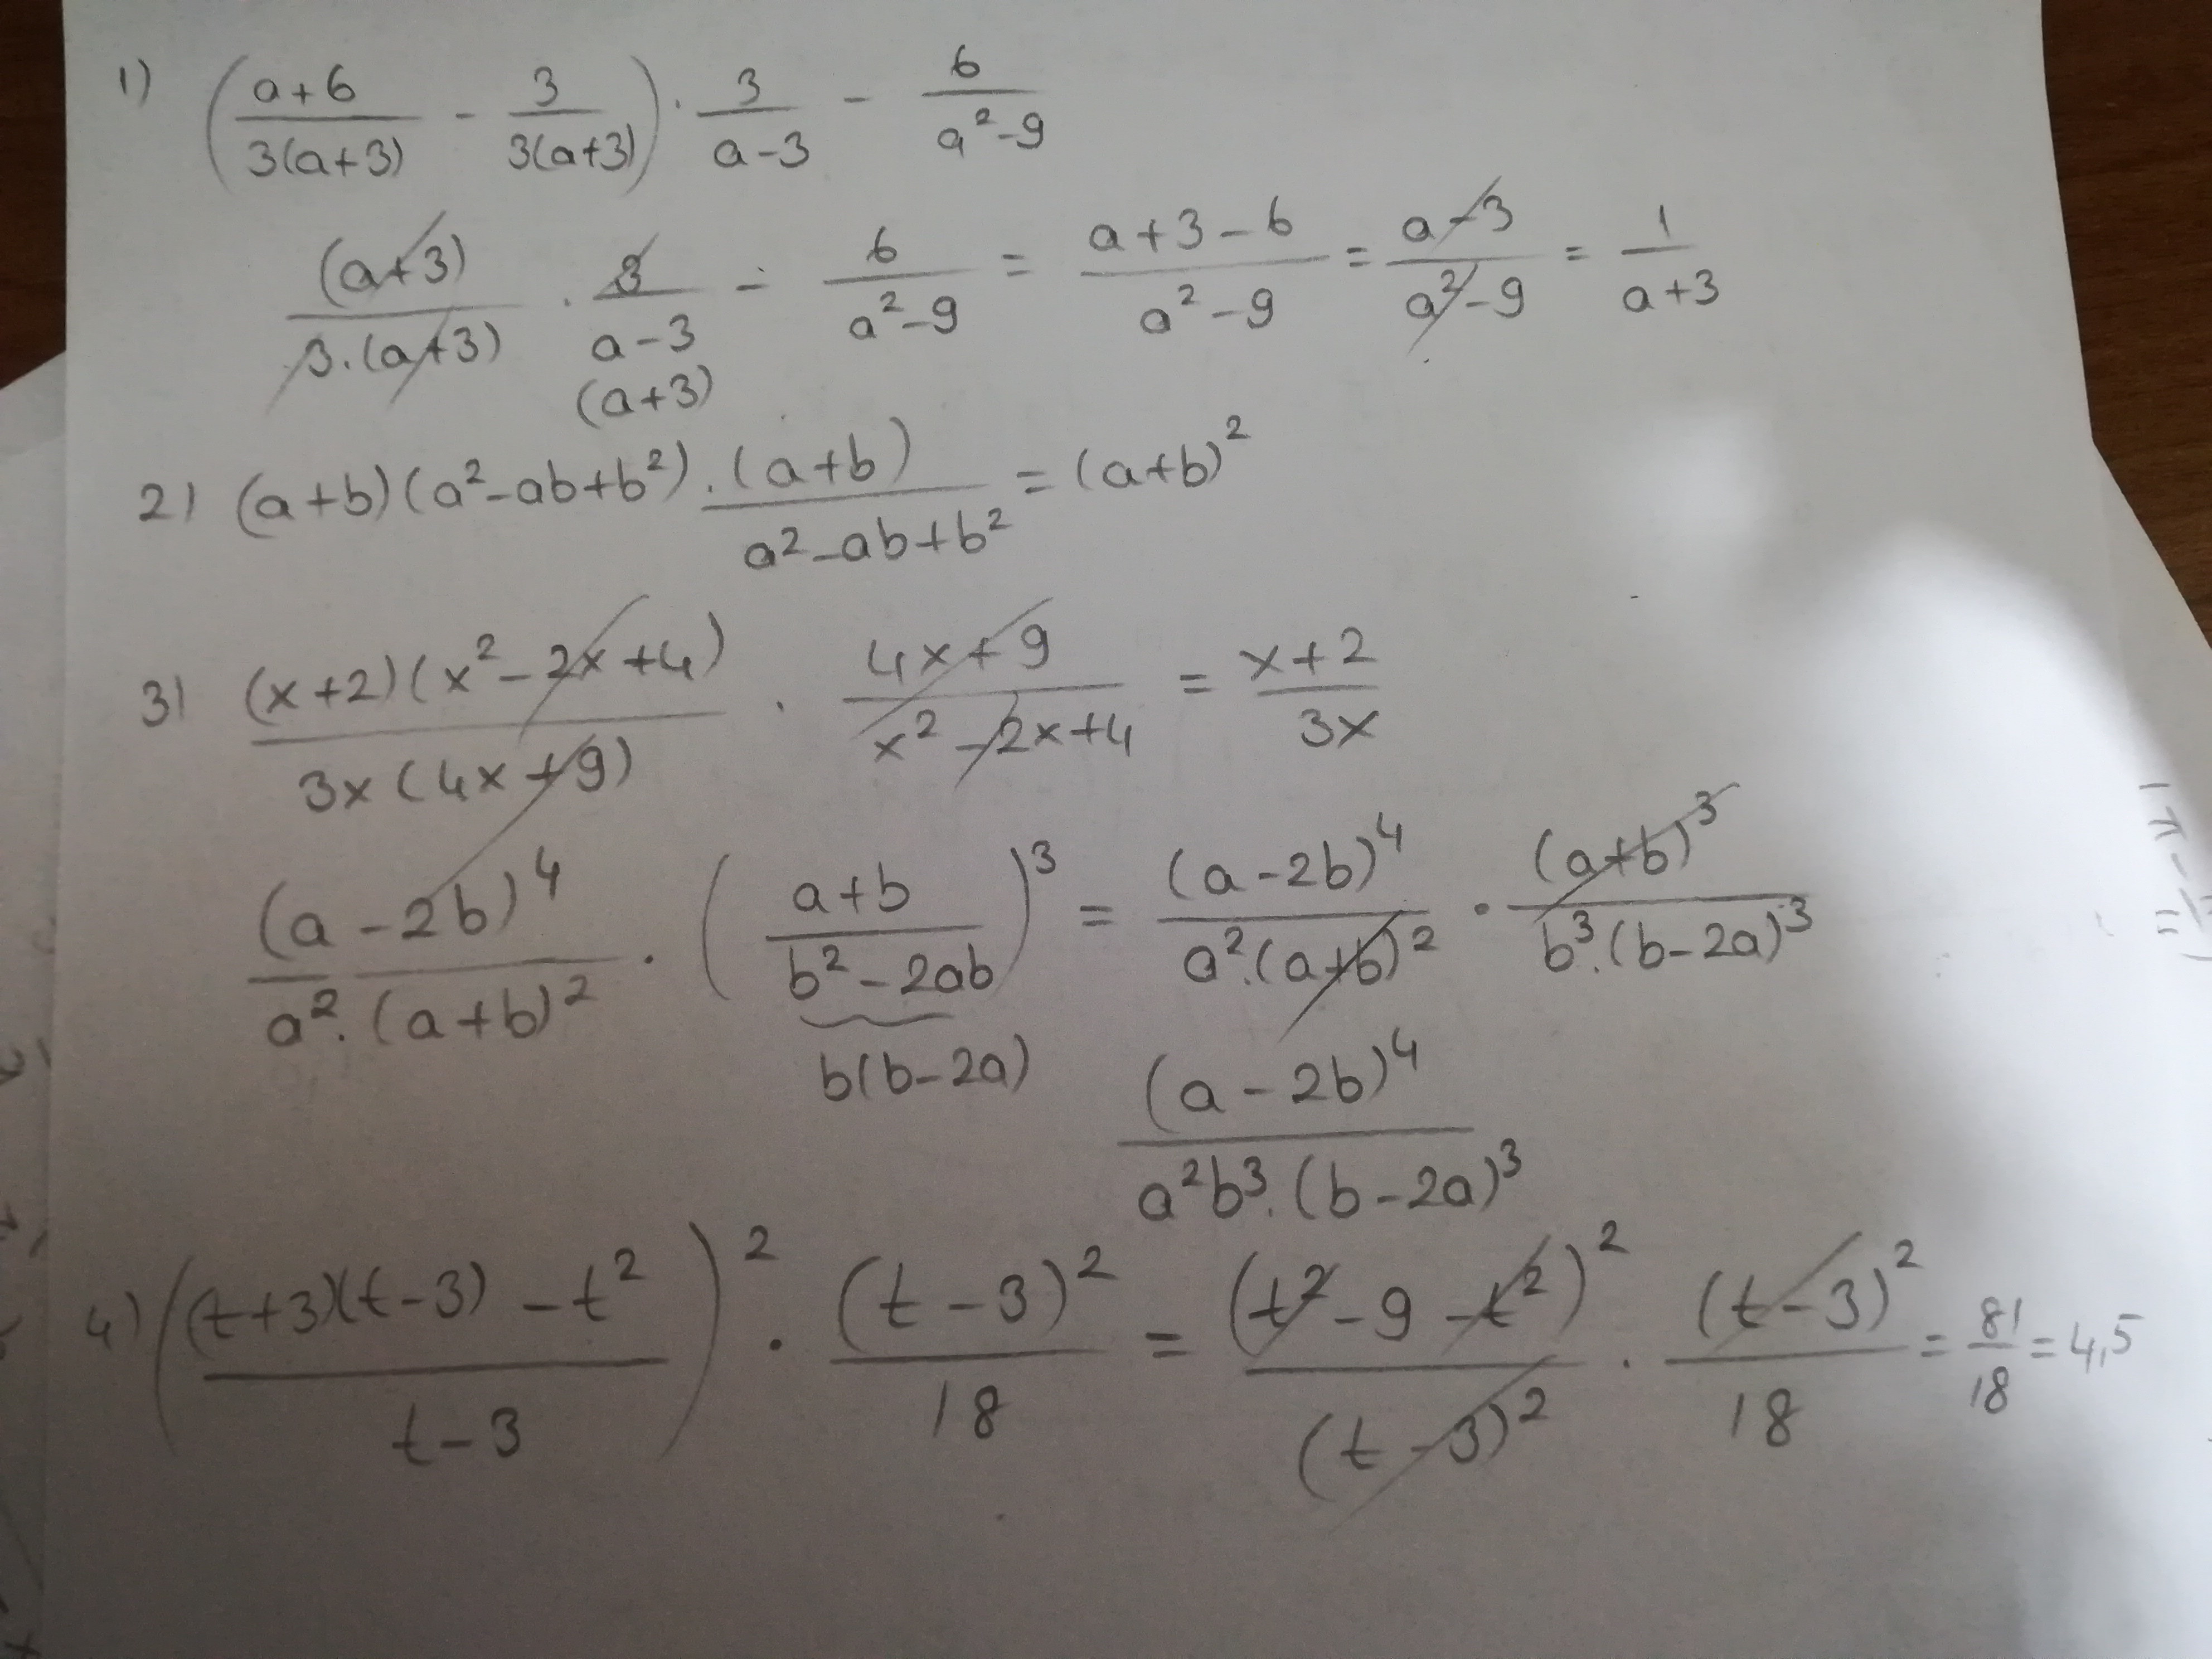 1) ((a+6)/(3(a+3)) - 3/(3(a+3))) · 3/(a-3) - 6/(a²-9)
(a+3)/(3·(a+3)) · 3/(a-3) - 6/(a²-9) = (a+3-6)/(a²-9) = (a-3)/(a²-9) = 1/(a+3)
(a+3)
2) (a+b)(a²-ab+b²) · (a+b)/(a²-ab+b²) = (a+b)²
3) (x+2)(x²-2x+4)/(3x(4x+9)) · (4x+9)/(x²-2x+4) = (x+2)/(3x)
(a-2b)⁴/(a²·(a+b)²) · ((a+b)/(b²-2ab))³ = (a-2b)⁴/(a²·(a+b)²) · (a+b)³/(b³·(b-2a)³)
b(b-2a)
(a-2b)⁴/(a²b³·(b-2a)³)
4) (((t+3)(t-3) - t²)/(t-3))² · (t-3)²/18 = (t²-9-t²)²/(t-3)² · (t-3)²/18 = 81/18 = 4,5